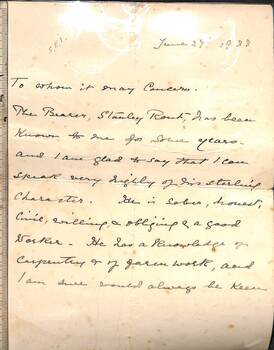 S.E.1.
June 29. 1933
To whom it may Concern.
The Bearer, Stanley Rout, has been
Known to me for some years.
and I am glad to say that I can
speak very highly of his sterling
Character. He is sober, honest,
Civil, willing, & obliging & a good
Worker. He has a Knowledge of
Carpentry & of farm work, and
I am sure would always be Keen